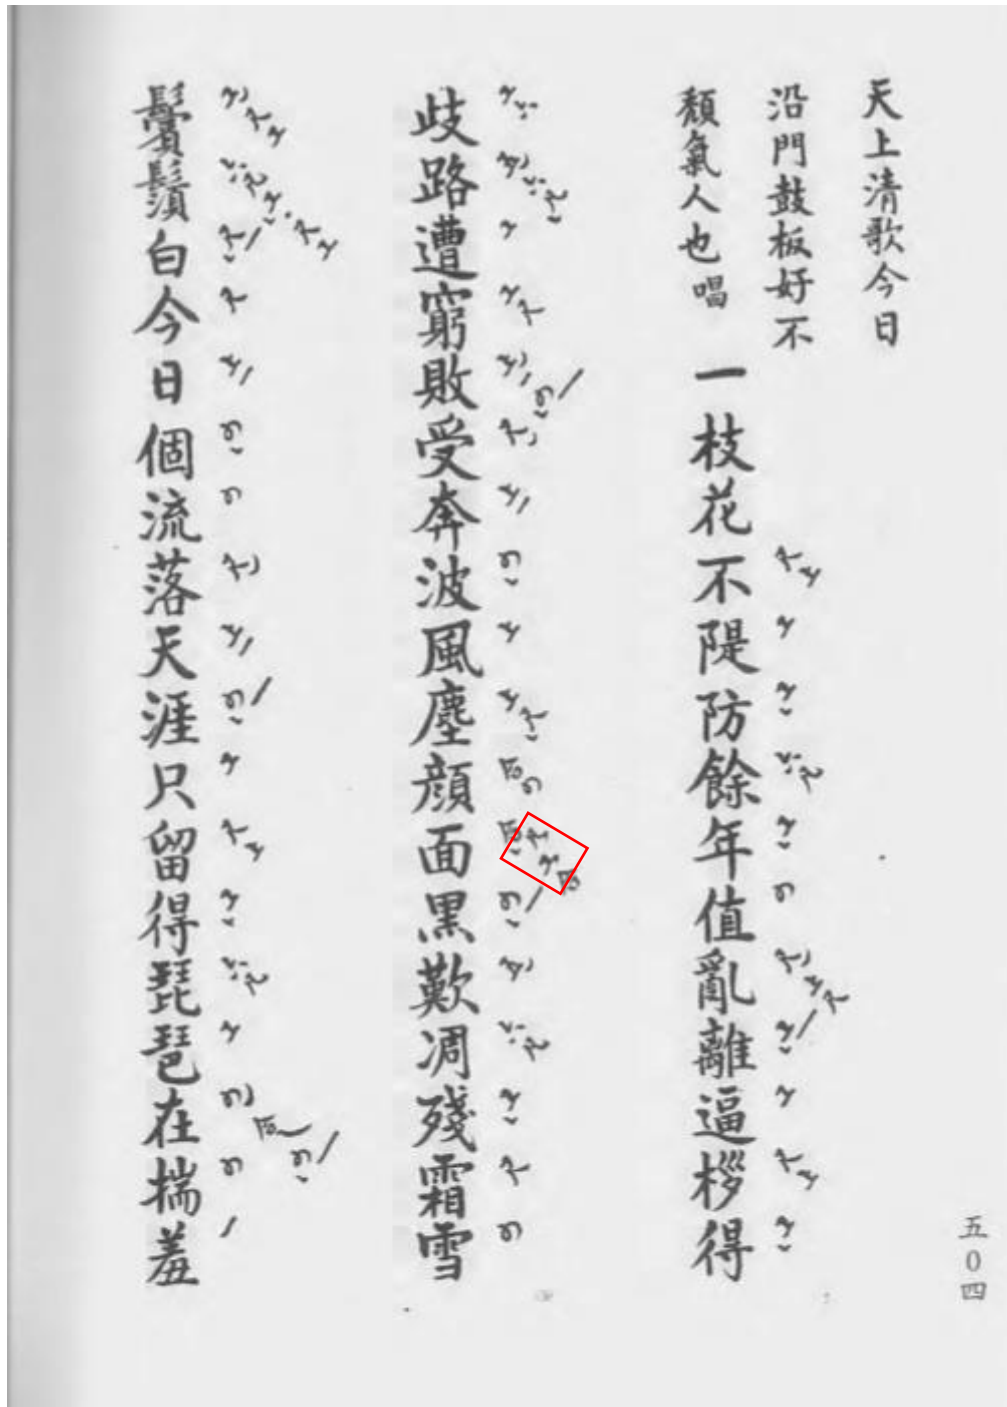 天上清歌今日
沿門鼓板好不
頹氣人也唱
一枝花不隄防餘年值亂離逼拶得
歧路遭窮敗受奔波風塵顏面黑歎凋殘霜雪
鬢鬚白今日個流落天涯只留得琵琶在揣羞
五0四